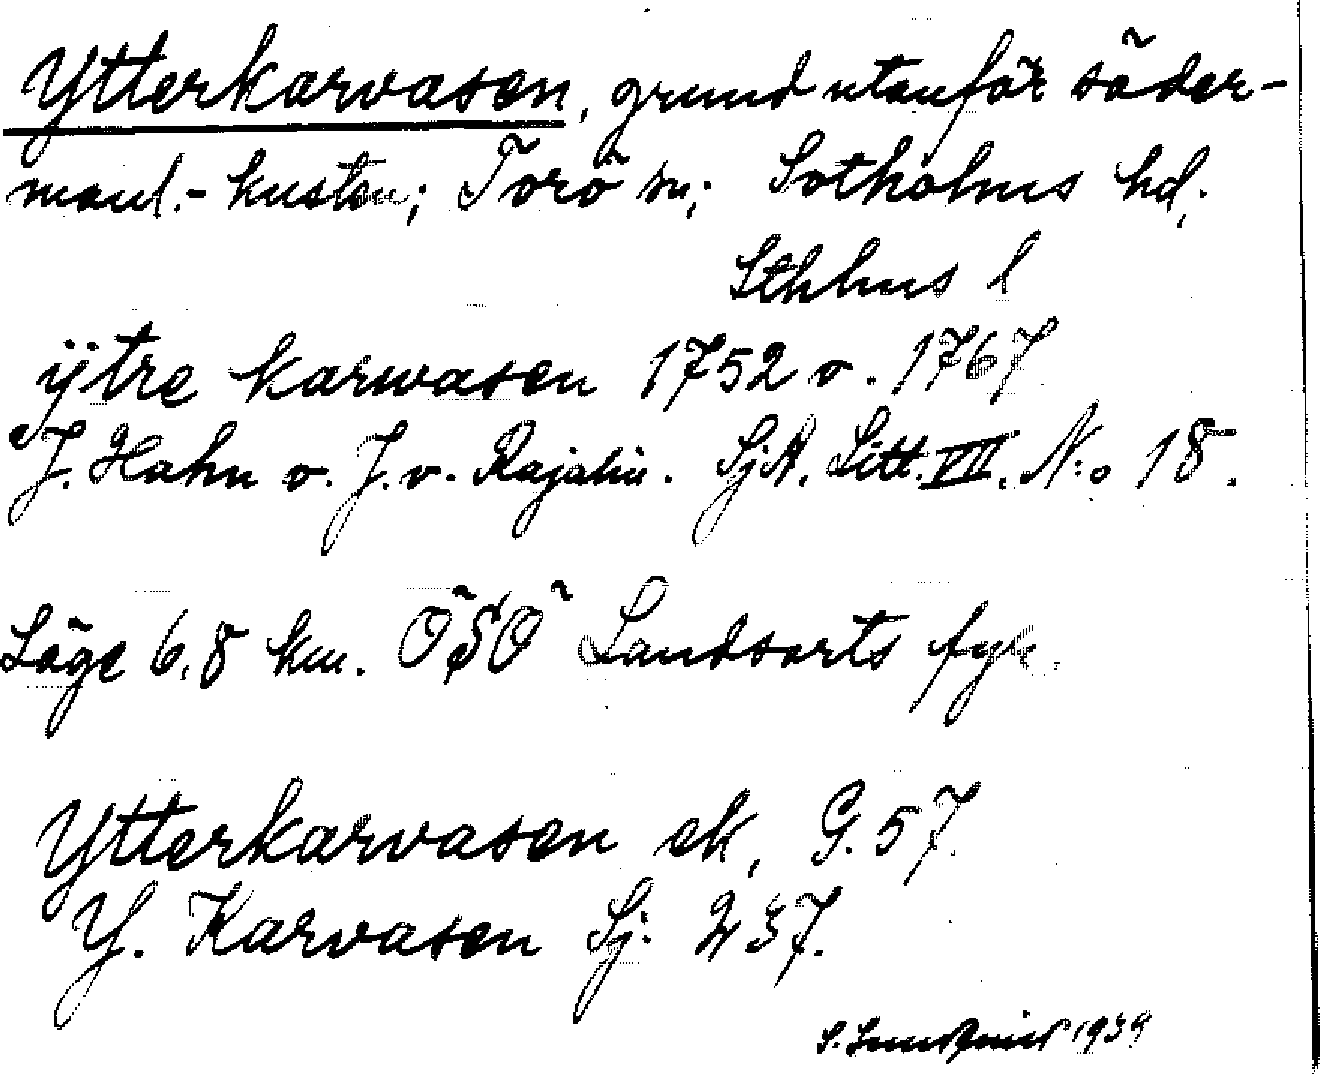 Ytterkarvasen, grund utanför söder-
manl.- kusten; Torö sn; Sotholms hd;
Sthlms l
ÿtre karwasen 1752 o. 1767
J. Hahn o. J. v. Rajalin. SjA. Litt. VII. N:o 18.
Läge 6,8 km. OSO Landsorts fyr.
Ytterkarvasen ek, G. 57.
Y. Karvasen Sj. 237.
S. 1939